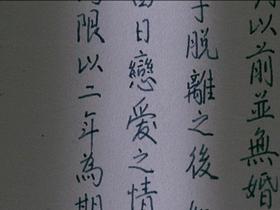 以前並無婚
脫離之後
日戀愛之情
限以二年為期